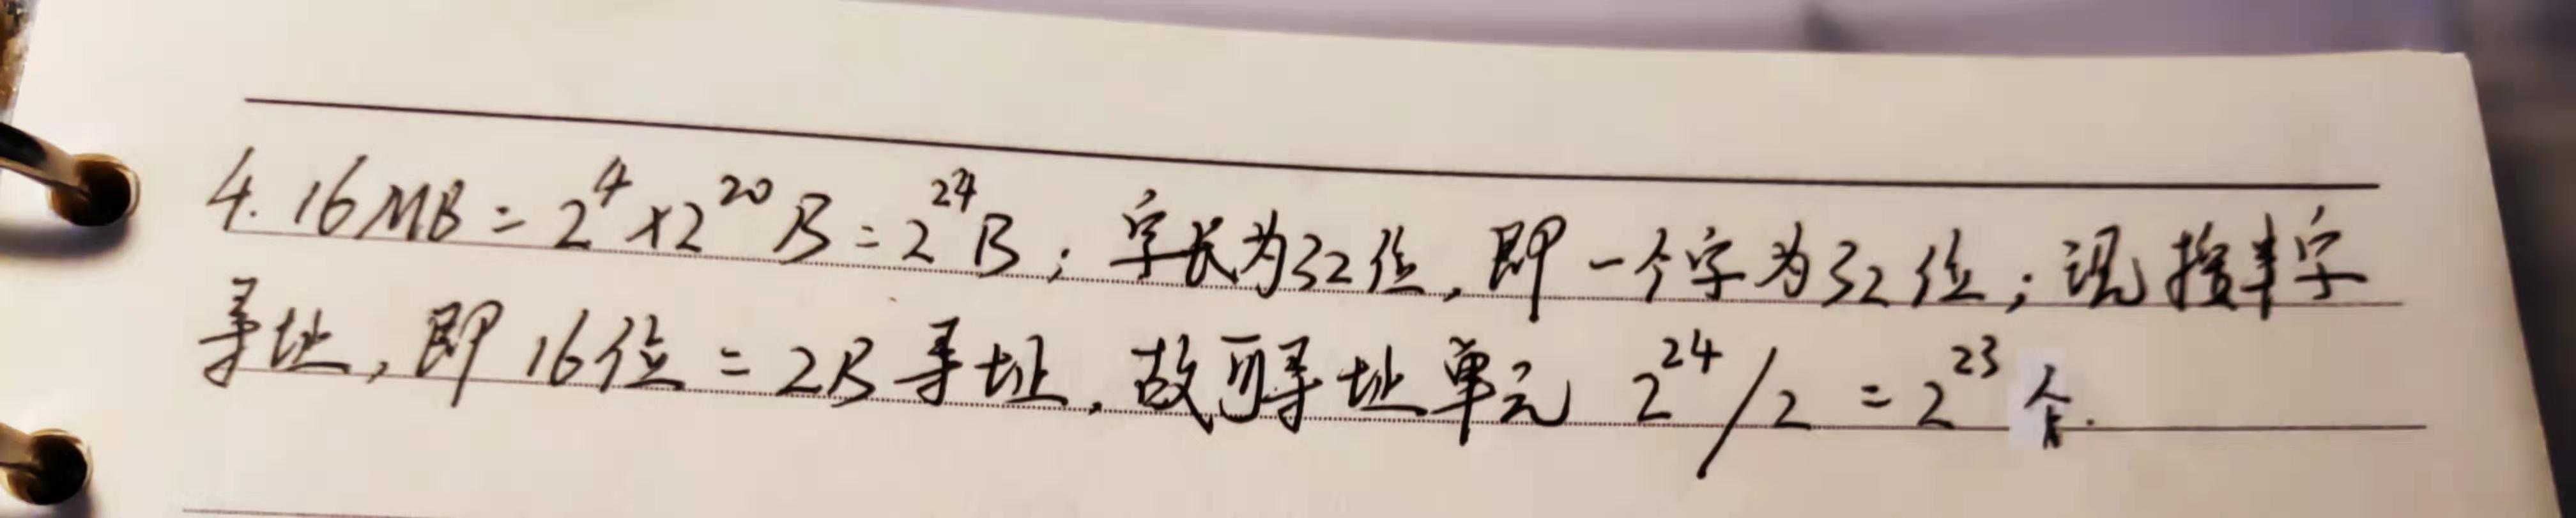 4. 16MB = 2^4 × 2^20 B = 2^24 B；字长为32位，即一个字为32位；现按半字
寻址，即16位 = 2B寻址，故可寻址单元 2^24 / 2 = 2^23